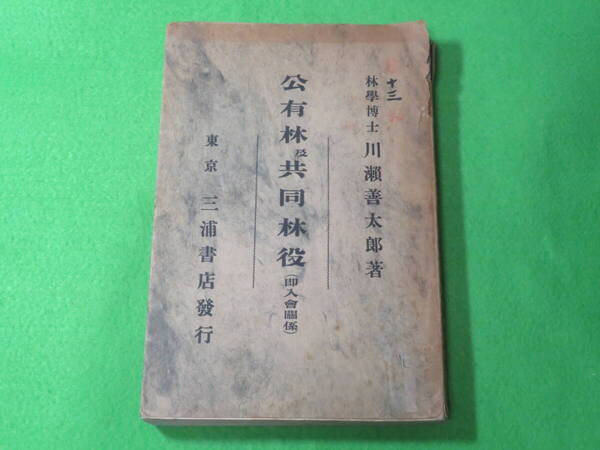 十三
林學博士 川瀨善太郎著
公有林及共同林役(即入會關係)
東京 三浦書店發行